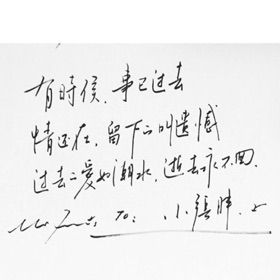 有時候.事已过去
情还在,留下的叫遗憾
过去的爱如潮水,逝去永不回.
To: 小張胖